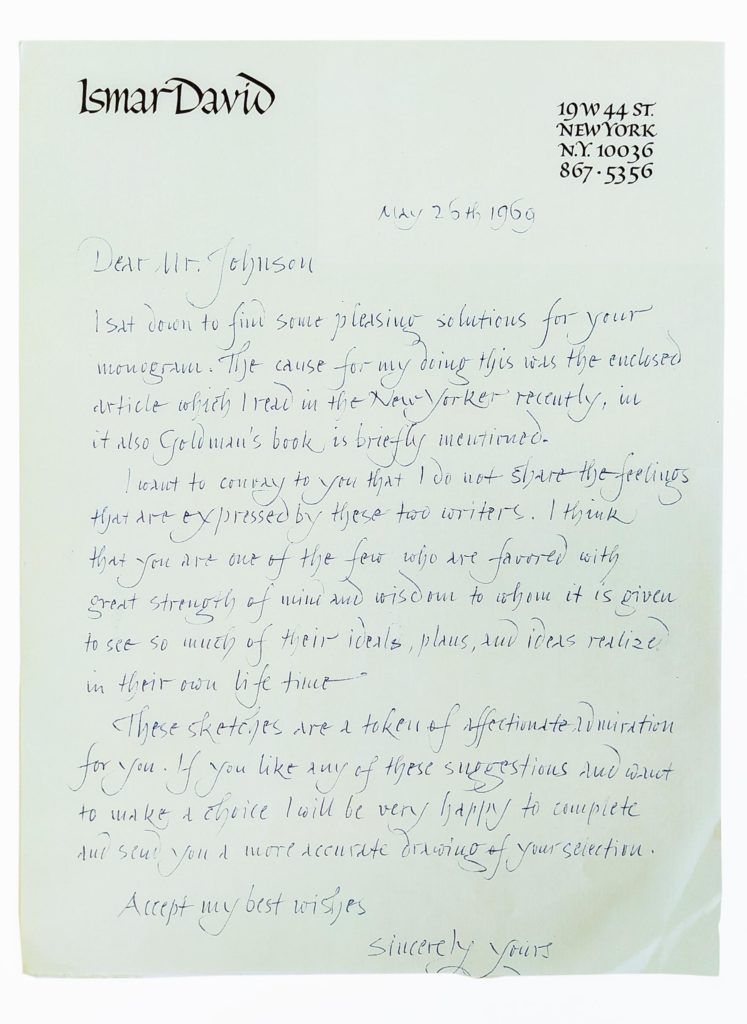 Ismar David
19 W 44 ST.
NEW YORK
N.Y. 10036
867·5356
May 26th 1969
Dear Mr. Johnson
I sat down to find some pleasing solutions for your
monogram. The cause for my doing this was the enclosed
article which I read in the New Yorker recently, in
it also Goldman's book is briefly mentioned.
I want to convay to you that I do not share the feelings
that are expressed by these two writers. I think
that you are one of the few who are favored with
great strength of mind and wisdom to whom it is given
to see so much of their ideals, plans, and ideas realized
in their own life time
These sketches are a token of affectionate admiration
for you. If you like any of these suggestions and want
to make a choice I will be very happy to complete
and send you a more accurate drawing of your selection.
Accept my best wishes
Sincerely yours